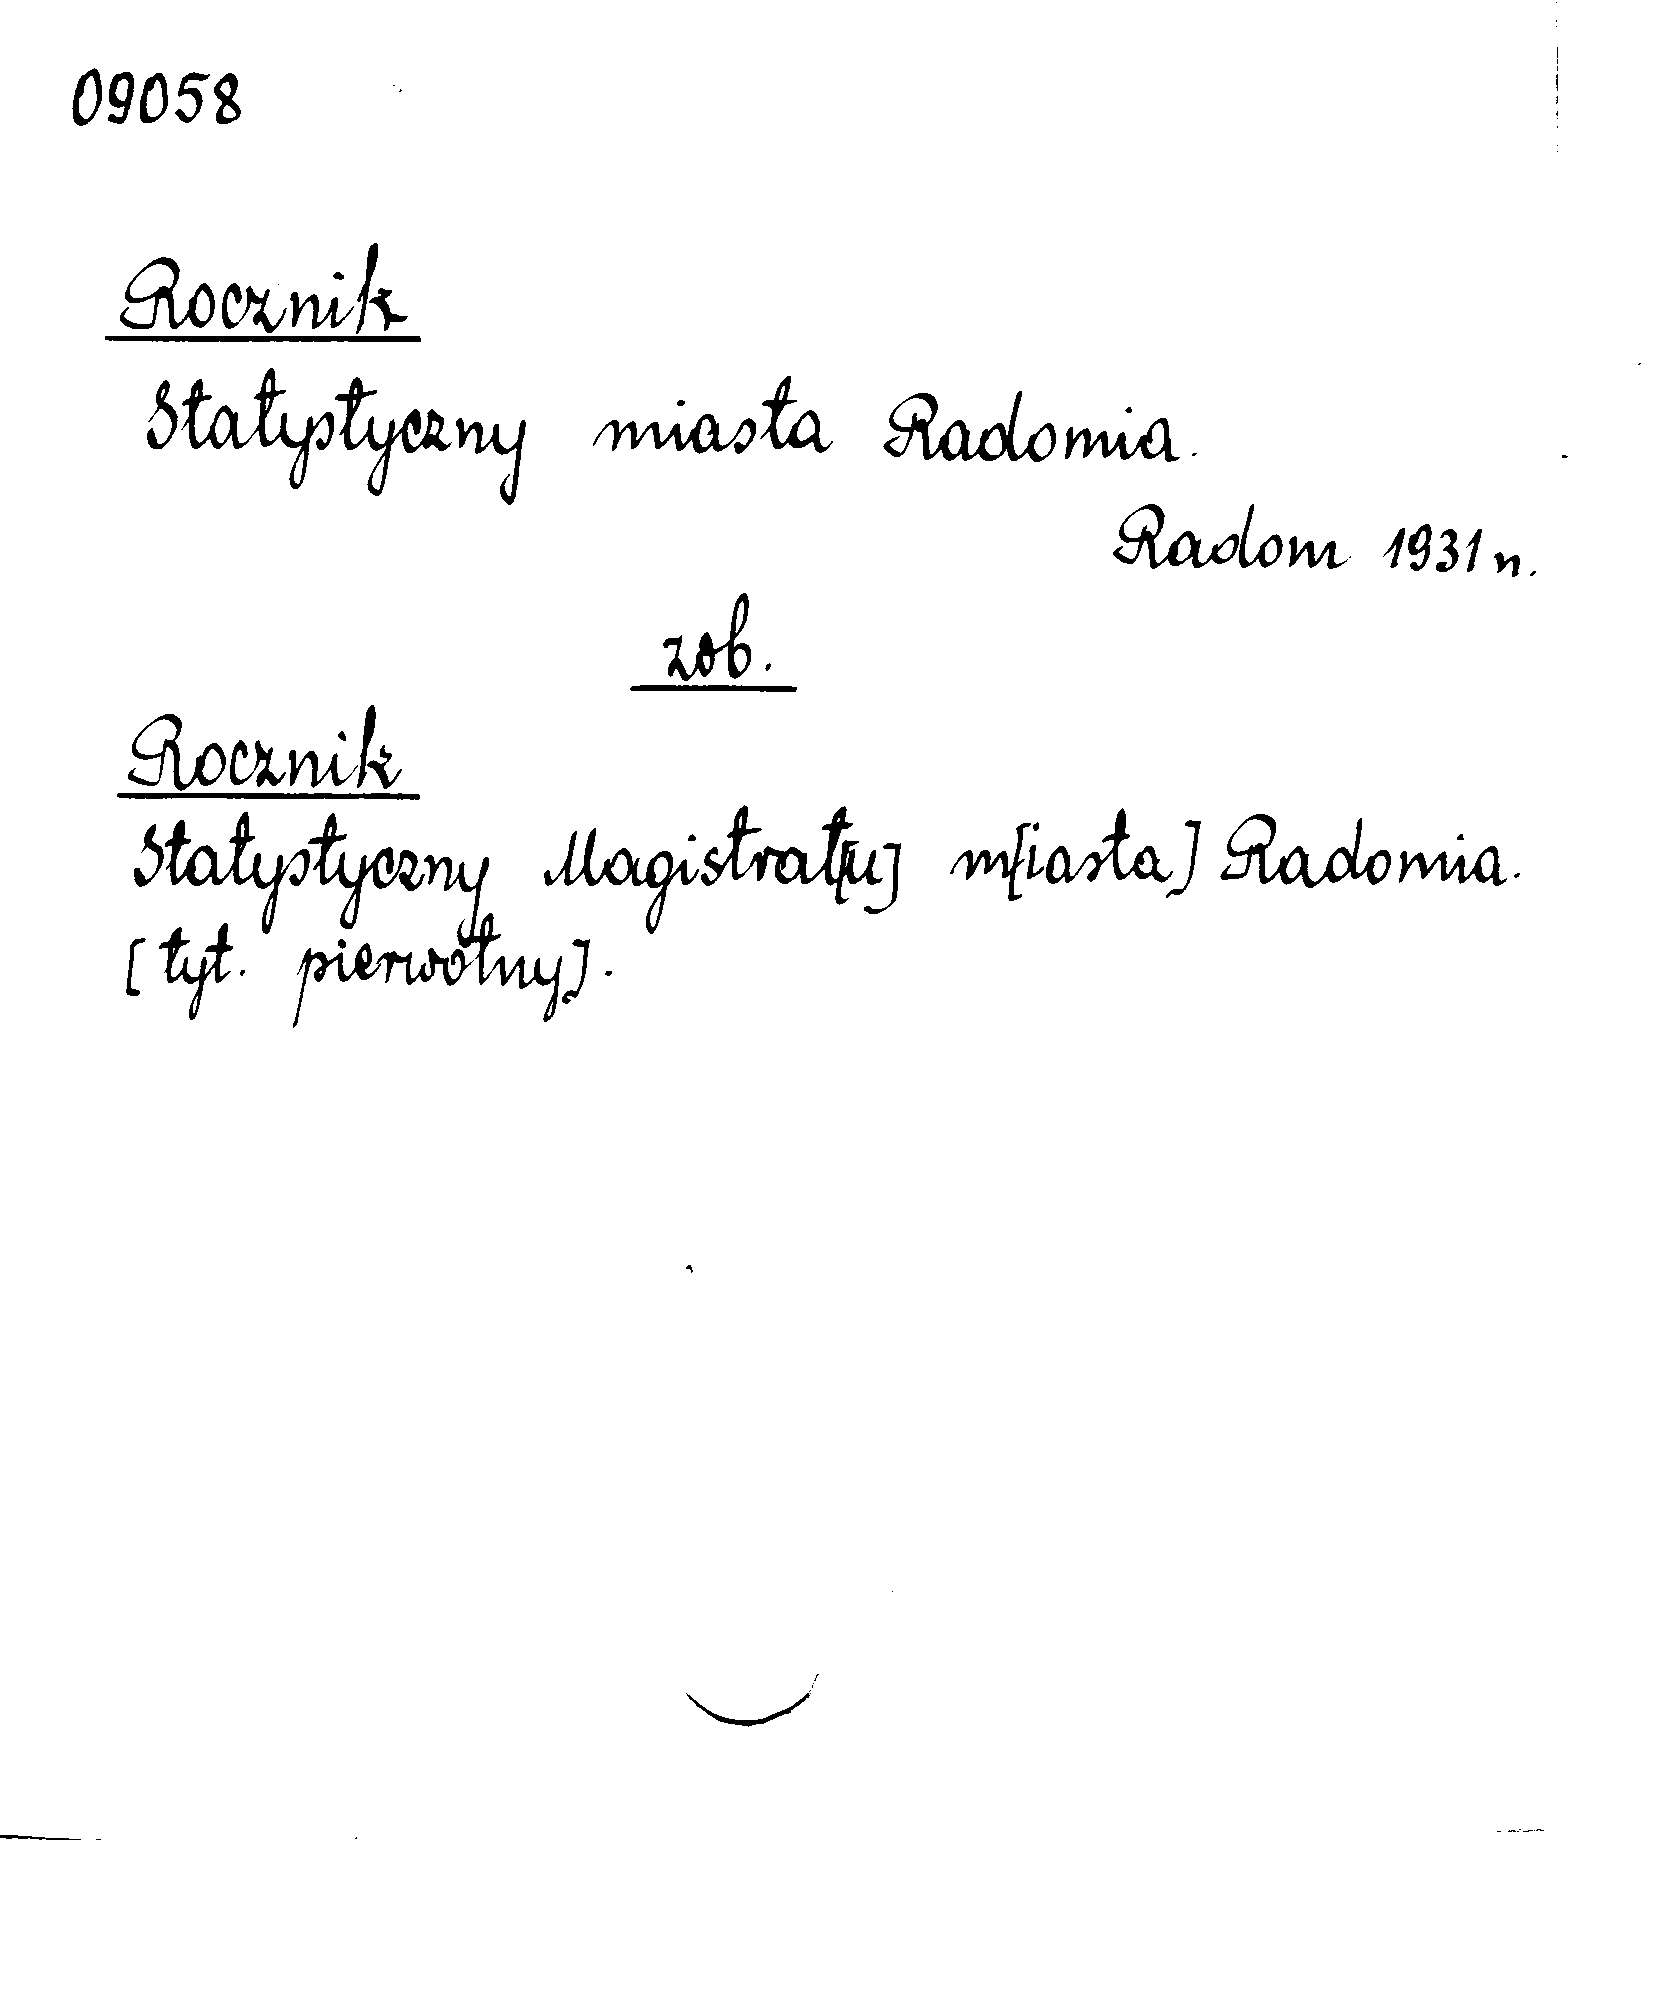 09058
Rocznik
Statystyczny miasta Radomia.
Radom 1931 r.
zob.
Rocznik
Statystyczny Magistrat[u] m[iasta] Radomia.
[tyt. pierwotny].